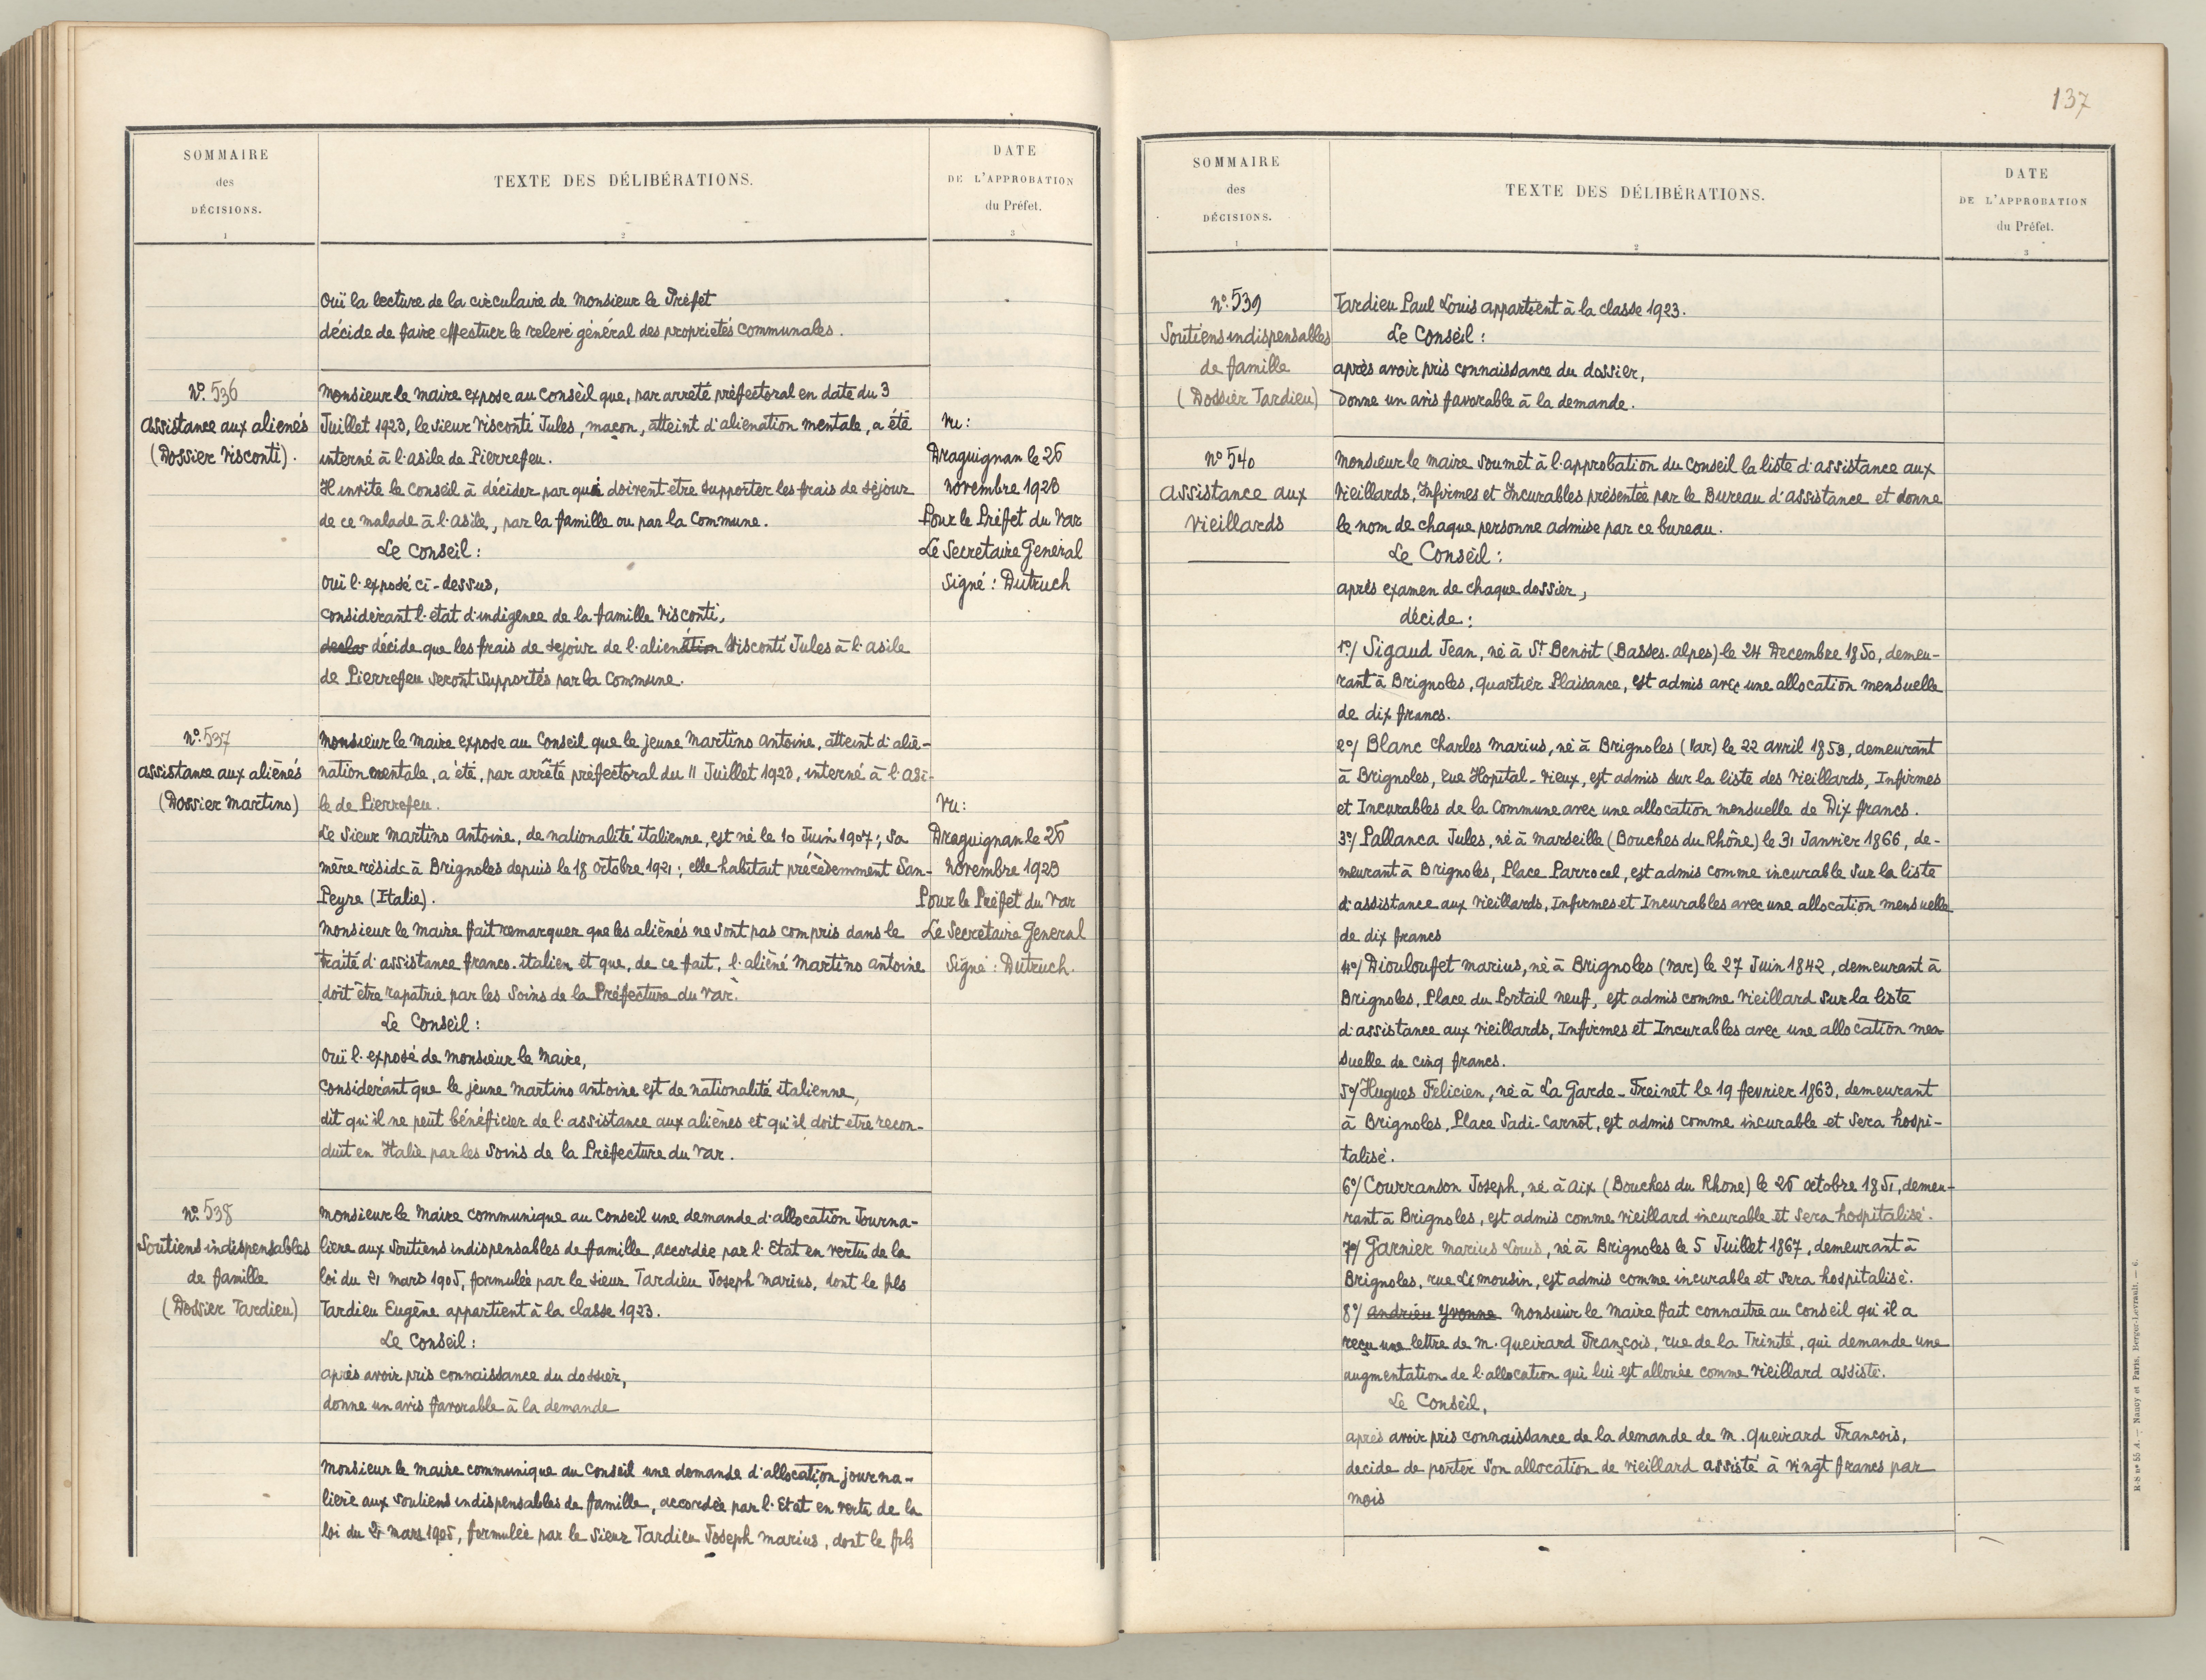 SOMMAIRE
des
DÉCISIONS.
1
TEXTE DES DÉLIBÉRATIONS.
2
DATE
DE L'APPROBATION
du Préfet.
3
Ouï la lecture de la circulaire de Monsieur le Préfet
décide de faire effectuer le relevé général des propriétés communales.
N° 536
Assistance aux aliénés
(Dossier Visconti).
Monsieur le Maire expose au Conseil que, par arrêté préfectoral en date du 3
Juillet 1923, le sieur Visconti Jules, maçon, atteint d'aliénation mentale, a été
interné à l'asile de Pierrefeu.
Il invite le Conseil à décider par qui doivent être supporter les frais de séjour
de ce malade à l'asile, par la famille ou par la Commune.
Le Conseil :
Ouï l'exposé ci-dessus,
considérant l'état d'indigence de la famille Visconti,
décide que les frais de séjour de l'aliénation Visconti Jules à l'asile
de Pierrefeu seront supportés par la Commune.
Vu :
Draguignan le 26
Novembre 1923
Pour le Préfet du Var
Le Secrétaire Général
Signé : Dutruch
N° 537
Assistance aux aliénés
(Dossier Martino)
Monsieur le Maire expose au Conseil que le jeune Martino Antoine, atteint d'alié-
nation mentale, a été, par arrêté préfectoral du 11 Juillet 1923, interné à l'asi-
le de Pierrefeu.
Le sieur Martino Antoine, de nationalité italienne, est né le 10 Juin 1907 ; sa
mère réside à Brignoles depuis le 18 octobre 1921 ; elle habitait précédemment San-
Peyre (Italie).
Monsieur le Maire fait remarquer que les aliénés ne sont pas compris dans le
traité d'assistance franco-italien et que, de ce fait, l'aliéné Martino Antoine
doit être rapatrié par les soins de la Préfecture du Var.
Le Conseil :
Ouï l'exposé de Monsieur le Maire,
considérant que le jeune Martino Antoine est de nationalité italienne,
dit qu'il ne peut bénéficier de l'assistance aux aliénés et qu'il doit être recon-
duit en Italie par les soins de la Préfecture du Var.
Vu :
Draguignan le 26
Novembre 1923
Pour le Préfet du Var
Le Secrétaire Général
Signé : Dutruch.
N° 538
Soutiens indispensables
de famille
(Dossier Tardieu)
Monsieur le Maire communique au Conseil une demande d'allocation Journa-
lière aux soutiens indispensables de famille, accordée par l'Etat en vertu de la
loi du 21 mars 1905, formulée par le sieur Tardieu Joseph Marius, dont le fils
Tardieu Eugène appartient à la classe 1923.
Le Conseil :
après avoir pris connaissance du dossier,
donne un avis favorable à la demande
Monsieur le Maire communique au Conseil une demande d'allocation journa-
lière aux soutiens indispensables de famille, accordée par l'Etat en vertu de la
loi du 21 mars 1905, formulée par le sieur Tardieu Joseph Marius, dont le fils
137
SOMMAIRE
des
DÉCISIONS.
1
TEXTE DES DÉLIBÉRATIONS.
2
DATE
DE L'APPROBATION
du Préfet.
3
N° 539
Soutiens indispensables
de famille
(Dossier Tardieu)
Tardieu Paul Louis appartient à la classe 1923.
Le Conseil :
après avoir pris connaissance du dossier,
Donne un avis favorable à la demande.
N° 540
Assistance aux
Vieillards
Monsieur le Maire soumet à l'approbation du Conseil la liste d'assistance aux
Vieillards, Infirmes et Incurables présentée par le Bureau d'assistance et donne
le nom de chaque personne admise par ce bureau.
Le Conseil :
après examen de chaque dossier,
décide :
1°/ Sigaud Jean, né à St Benoit (Basses-Alpes) le 24 Decembre 1850, demeu-
rant à Brignoles, quartier Plaisance, est admis avec une allocation mensuelle
de dix francs.
2°/ Blanc Charles Marius, né à Brignoles (Var) le 22 avril 1853, demeurant
à Brignoles, rue Hopital-Vieux, est admis sur la liste des Vieillards, Infirmes
et Incurables de la Commune avec une allocation mensuelle de Dix francs.
3°/ Pallanca Jules, né à Marseille (Bouches du Rhône) le 31 Janvier 1866, de-
meurant à Brignoles, Place Parrocel, est admis comme incurable sur la liste
d'assistance aux Vieillards, Infirmes et Incurables avec une allocation mensuelle
de dix francs
4°/ Diouloufet Marius, né à Brignoles (Var) le 27 Juin 1842, demeurant à
Brignoles, Place du Portail neuf, est admis comme Vieillard sur la liste
d'assistance aux Vieillards, Infirmes et Incurables avec une allocation men
suelle de cinq francs.
5°/ Hugues Felicien, né à La Garde-Freinet le 19 fevrier 1863, demeurant
à Brignoles, Place Sadi-Carnot, est admis comme incurable et sera hospi-
talisé.
6°/ Courranson Joseph, né à Aix (Bouches du Rhone) le 26 octobre 1851, demeu-
rant à Brignoles, est admis comme vieillard incurable et sera hospitalisé.
7°/ Garnier Marius Louis, né à Brignoles le 5 Juillet 1867, demeurant à
Brignoles, rue Limousin, est admis comme incurable et sera hospitalisé.
8°/ Andrieu Yvonne Monsieur le Maire fait connaître au Conseil qu'il a
reçu une lettre de M. Queirard François, rue de la Trinité, qui demande une
augmentation de l'allocation qui lui est allouée comme Vieillard assisté.
Le Conseil,
après avoir pris connaissance de la demande de M. Queirard Francois,
decide de porter son allocation de vieillard assisté à vingt francs par
mois
R-S n° 55 A. — Nancy et Paris, Berger-Levrault. — 6.